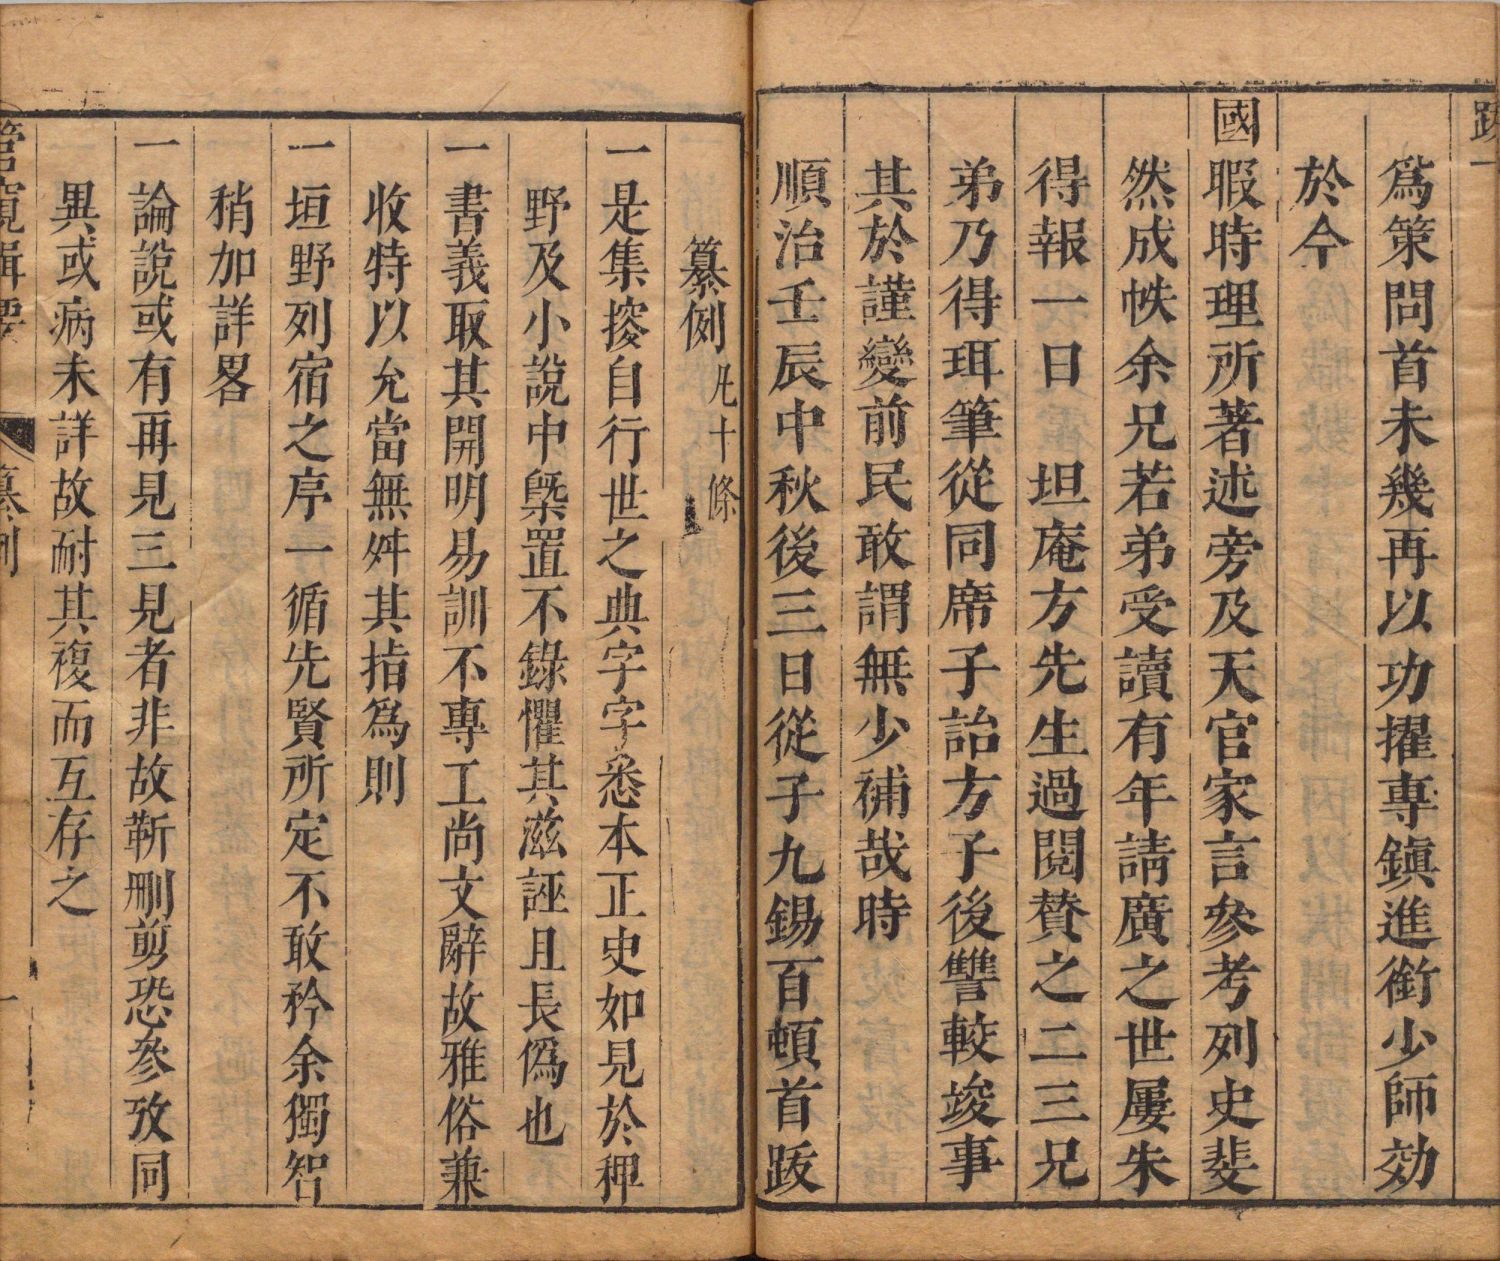 跋一
爲策問首未幾再以功擢專鎮進銜少師効
於今
國暇時理所著述旁及天官家言參考列史斐
然成帙余兄若弟受讀有年請廣之世屢朱
得報一日 坦庵方先生過閱賛之二三兄
弟乃得珥筆從同席子詒方子後讐較竣事
其於謹變前民敢謂無少補哉時
順治壬辰中秋後三日從子九錫百頓首跋
纂例 凡十條
一是集㨲自行世之典字字悉本正史如見於稗
野及小說中槩置不錄懼其滋誣且長僞也
一書義取其開明易訓不專工尚文辭故雅俗兼
收特以允當無舛其指爲則
一垣野列宿之序一循先賢所定不敢矜余獨智
稍加詳畧
一論說或有再見三見者非故靳刪剪恐參攷同
異或病未詳故耐其複而互存之
管窺輯要 纂例 一